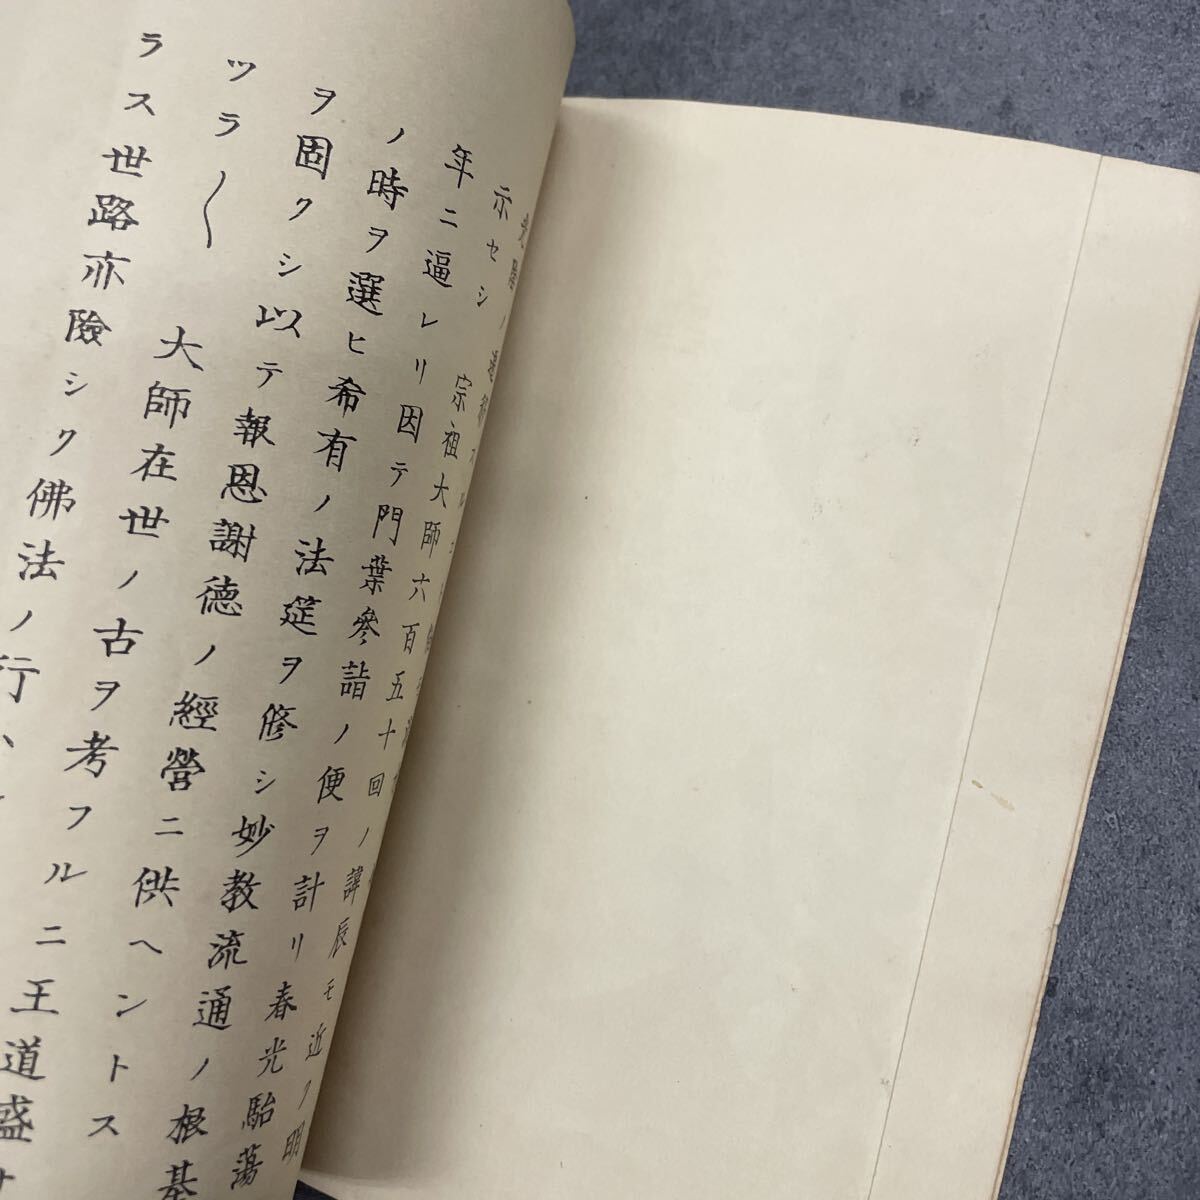 光陰ノ
示セシ　宗祖大師六百五十回ノ諱辰モ近ク明
年ニ逼レリ因テ門葉參詣ノ便ヲ計リ春光駘蕩
ノ時ヲ選ヒ希有ノ法筵ヲ修シ妙教流通ノ根基
ヲ固クシ以テ報恩謝德ノ經營ニ供ヘントス
ツラ〱　大師在世ノ古ヲ考フルニ王道盛
ラス世路亦險シク佛法ノ行